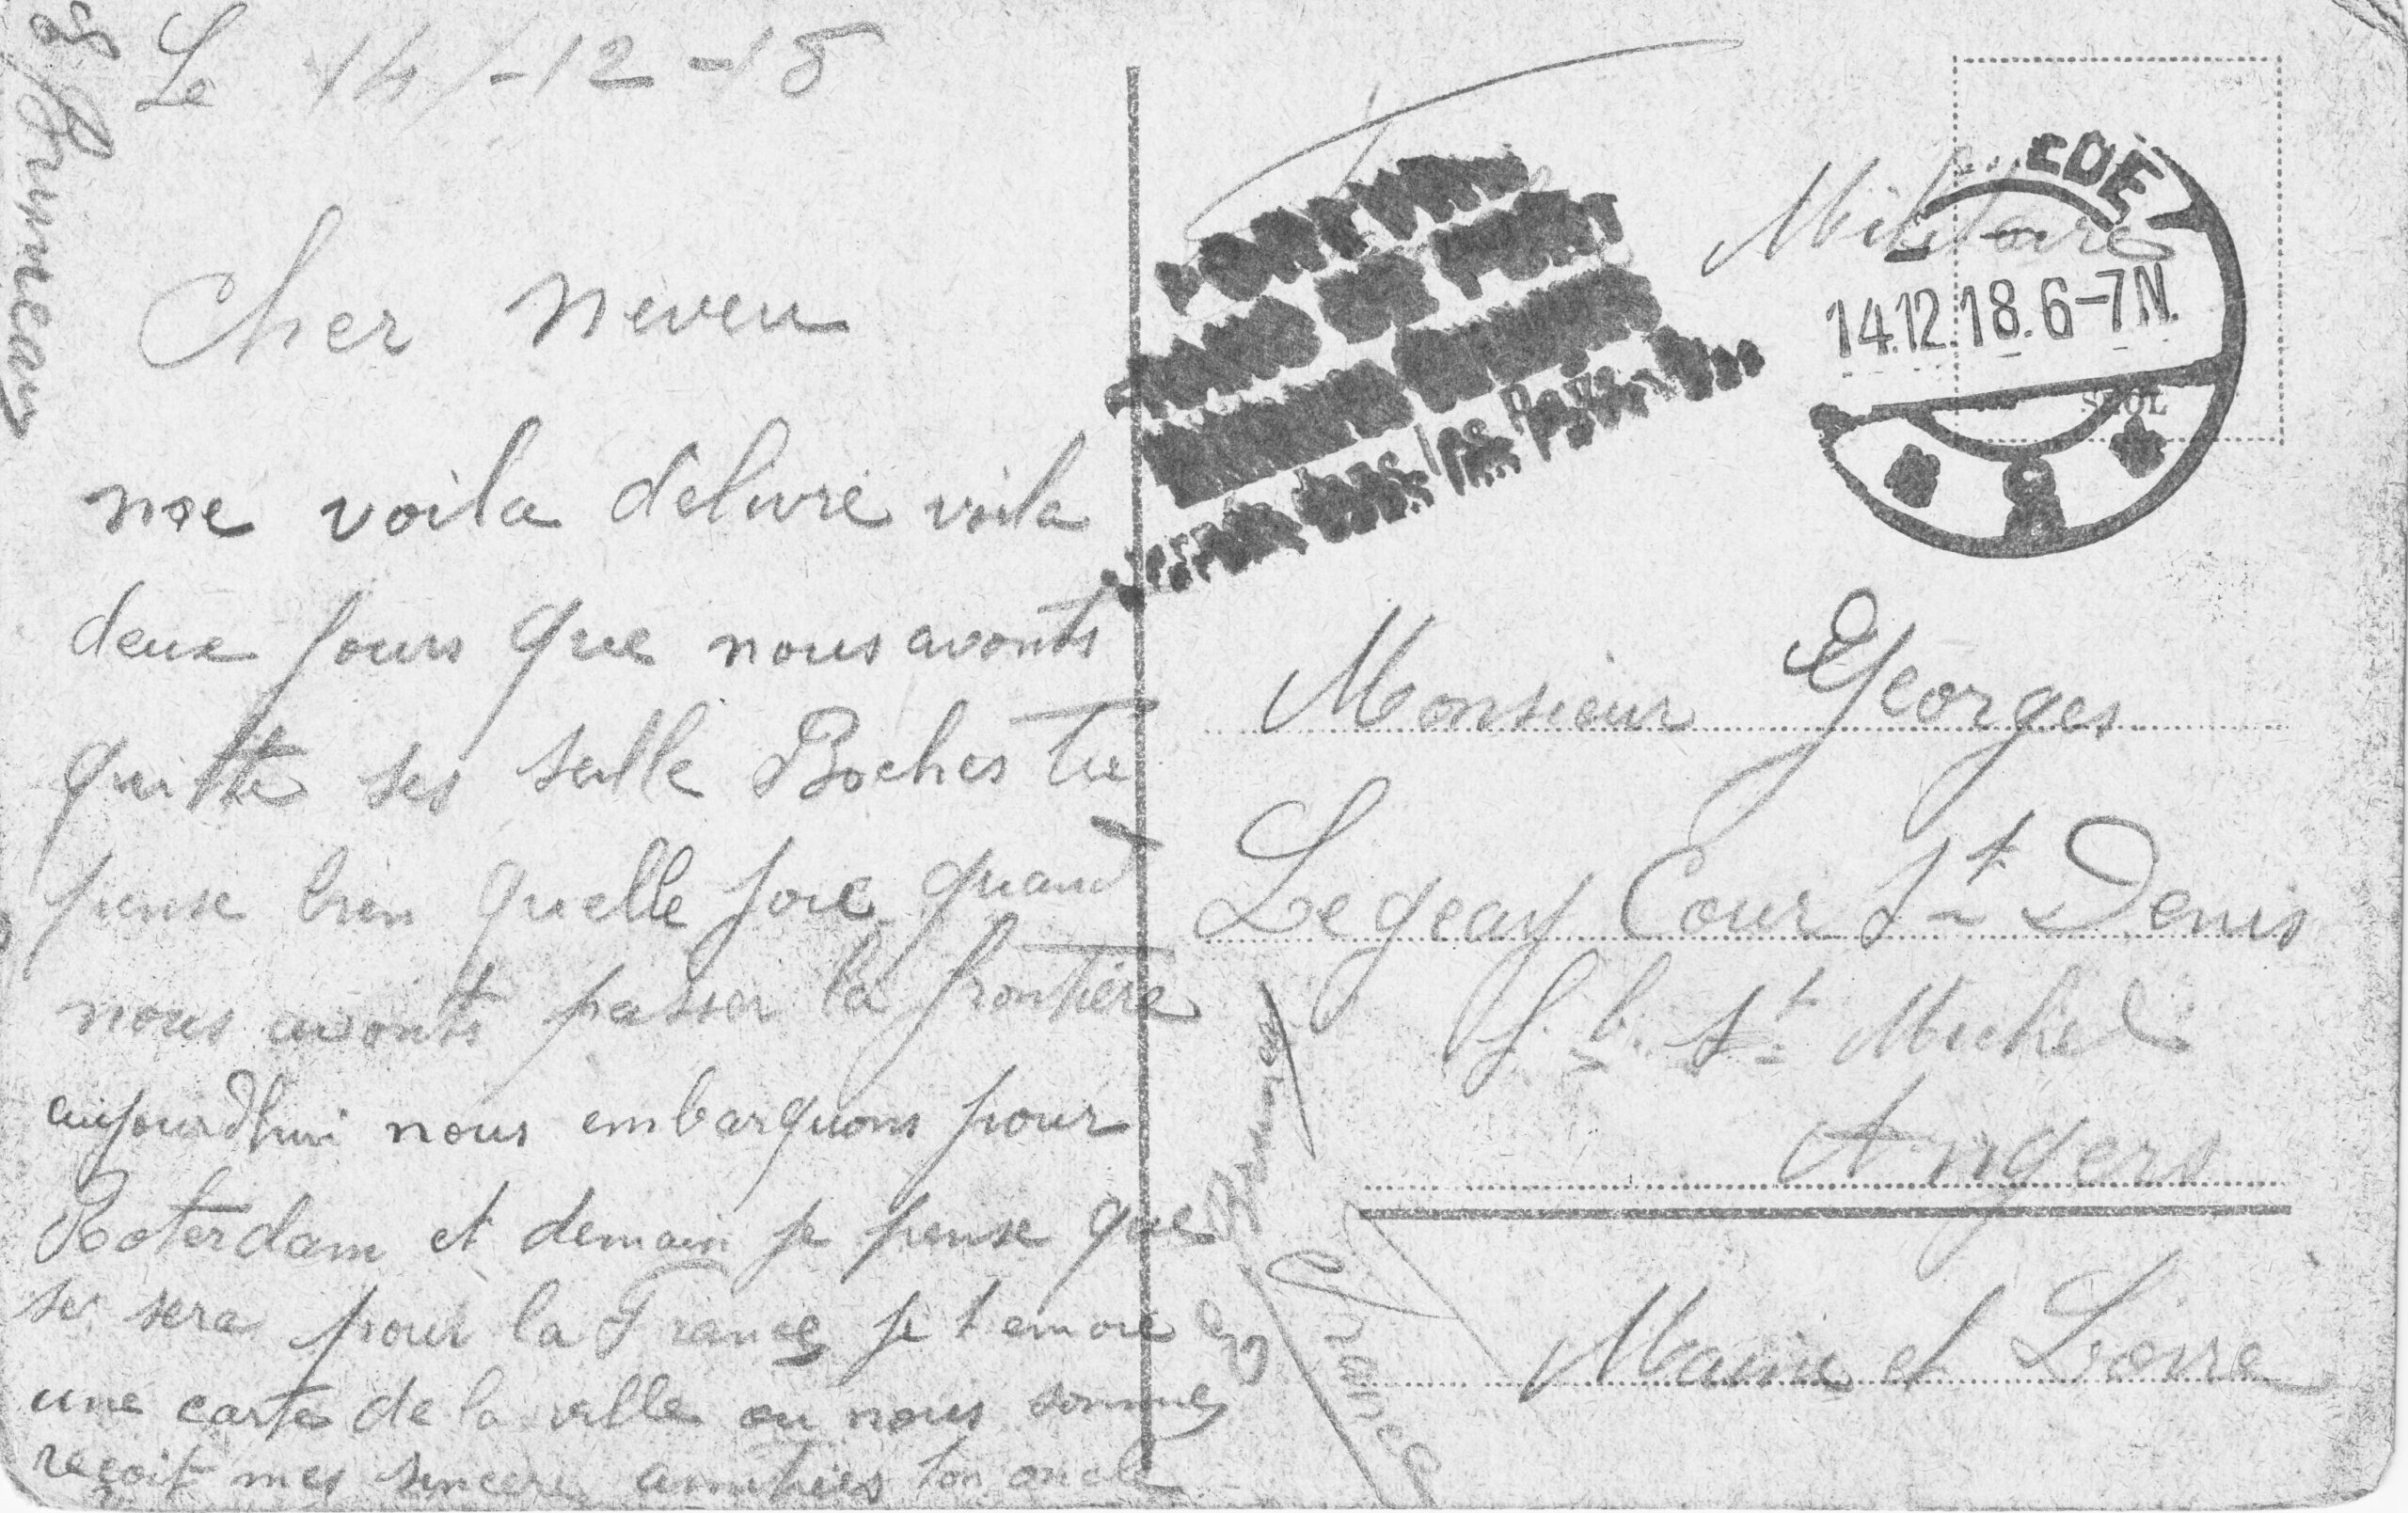 Le 14-12-18
Cher neveu
me voila delivré voila
deux jours que nous avonts
quitté ses salle Boches tu
pense bien quelle joie quand
nous avonts passer la frontière
aujourdhui nous embarquons pour
Roterdam et demain je pense que
se sera pour la France je t envoie
une carte de la ville ou nous somme
reçoit mes sincere amitiés ton oncle
Militaire
EDE
14.12.18.6-7N.
Monsieur Georges
Legeay Cour St Denis
f. b. St Michel
Angers
Maine et Loire
France